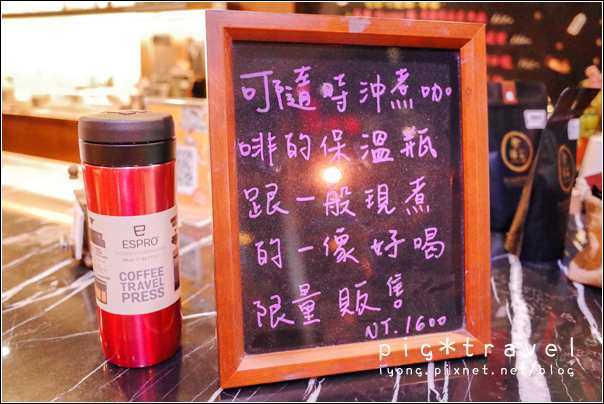 可隨時沖煮咖
啡的保溫瓶
跟一般現煮
的一像好喝
限量販售
NT.1600
ESPRO
MAKE IT BETTER
COFFEE
TRAVEL
PRESS
pig*travel
iyong.pixnet.net/blog